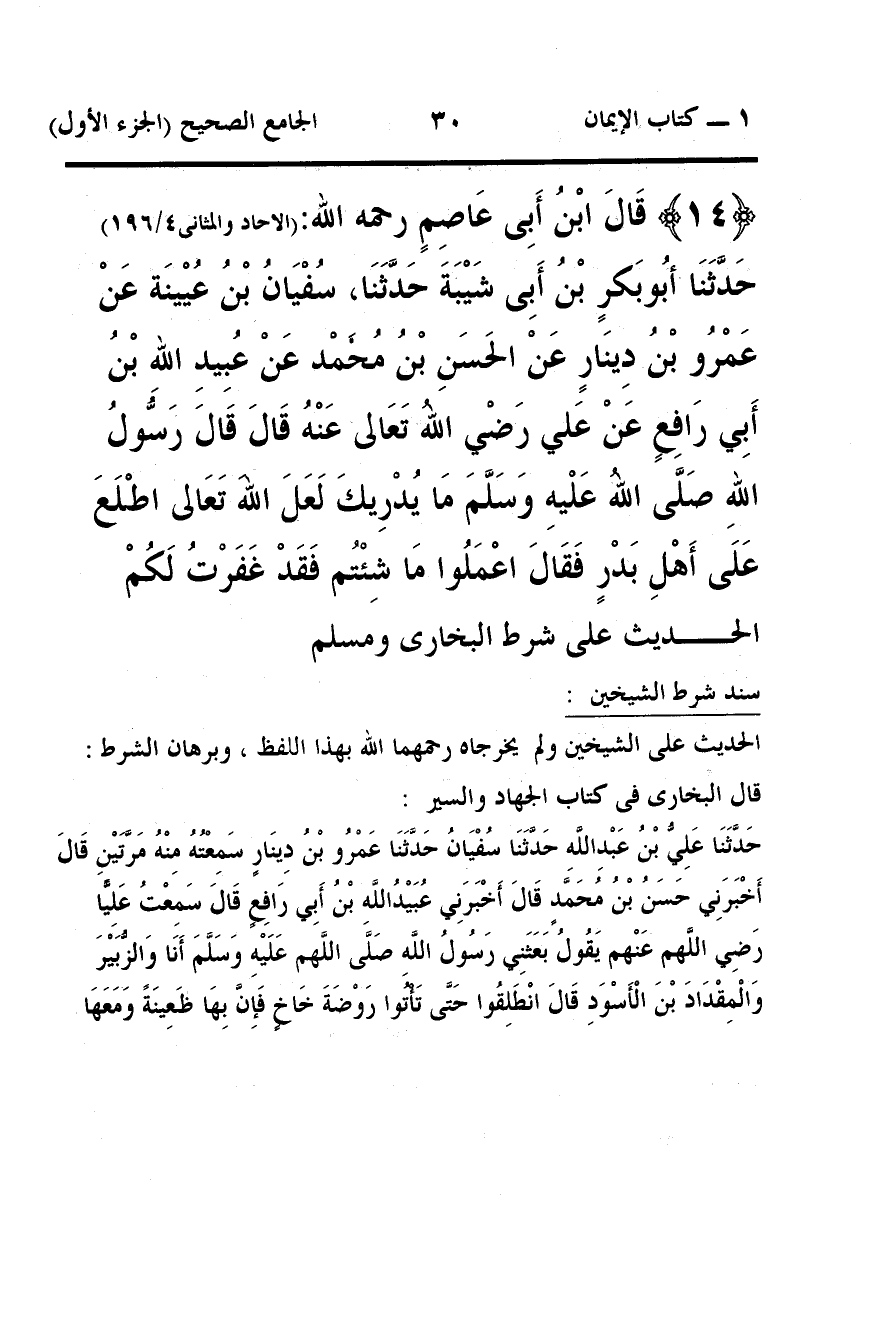 ١ ـ كتاب الإيمان ٣٠ الجامع الصحيح (الجزء الأول)
﴿١٤﴾ قَالَ ابْنُ أَبى عَاصِمٍ رحمه الله: (الاحاد والمثانى٤/١٩٦)
حَدَّثَنَا أَبُوبَكرٍ بْنُ أَبى شَيْبَةَ حَدَّثَنَا، سُفْيَانُ بْنُ عُيْينَة عَنْ
عَمْرُو بْنُ دِينَارٍ عَنْ الحَسَنِ بْنُ مُحَمْد عَنْ عُبِيدِ اللهِ بْنُ
أَبِي رَافِعٍ عَنْ عَلي رَضْي اللهُ تَعَالى عَنْهُ قَالَ قَالَ رَسُّولُ
اللهِ صَلَّى اللهُ عَلْيهِ وَسَلَّمَ مَا يُدْرِيكَ لَعَلَ اللهَ تَعَالى اطْلَعَ
عَلَى أَهْلِ بَدْرٍ فَقَالَ اعْمَلُوا مَا شِئْتُم فَقَدْ غَفَرْتُ لَكُمْ
الحـــــديث على شرط البخارى ومسلم
سند شرط الشيخين :
الحديث على الشيخين ولم يخرجاه رحمهما الله بهذا اللفظ ، وبرهان الشرط :
قال البخارى فى كتاب الجهاد والسير :
حَدَّثَنَا عَلِيُّ بْنُ عَبْدِاللَّهِ حَدَّثَنَا سُفْيَانُ حَدَّثَنَا عَمْرُو بْنُ دِينَارٍ سَمِعْتُهُ مِنْهُ مَرَّتَيْنِ قَالَ
أَخْبَرَنِي حَسَنُ بْنُ مُحَمَّدٍ قَالَ أَخْبَرَنِي عُبَيْدُاللَّهِ بْنُ أَبِي رَافِعٍ قَالَ سَمِعْتُ عَلِيًّا
رَضِي اللهم عَنْهم يَقُولُ بَعَثَنِي رَسُولُ اللَّهِ صَلَّى اللهم عَلَيْهِ وَسَلَّمَ أَنَا وَالزُّبَيْرَ
وَالْمِقْدَادَ بْنَ الْأَسْوَدِ قَالَ انْطَلِقُوا حَتَّى تَأْتُوا رَوْضَةَ خَاخٍ فَإِنَّ بِهَا ظَعِينَةً وَمَعَهَا